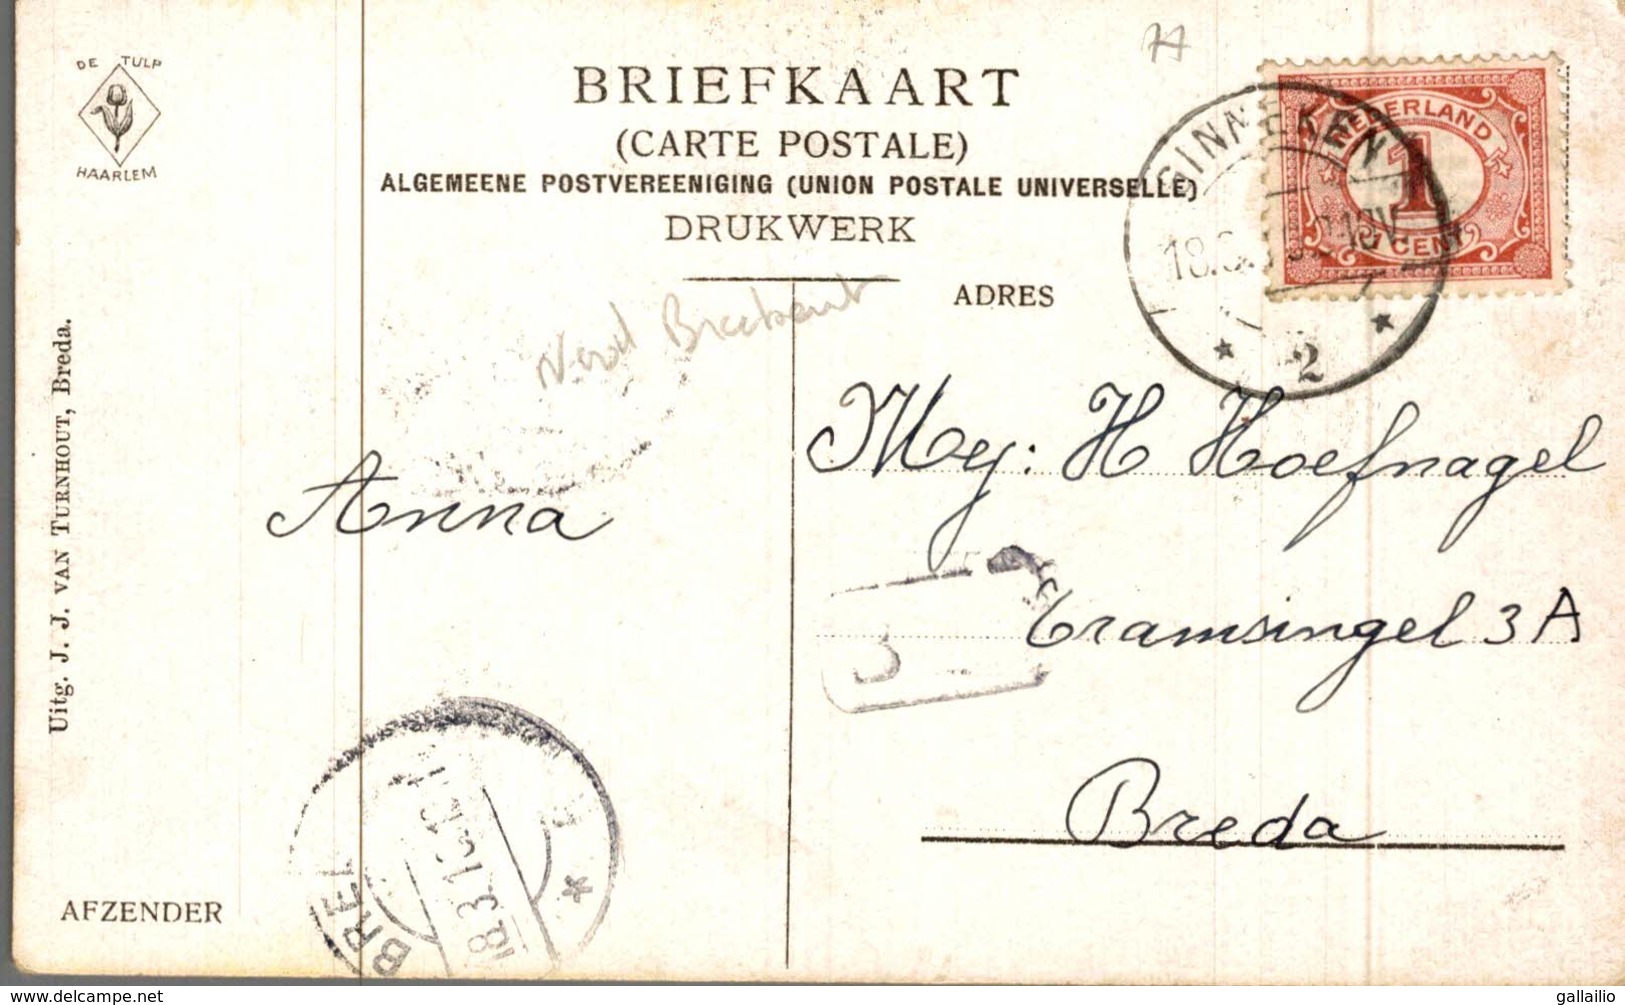 DE TULP
HAARLEM
BRIEFKAART
(CARTE POSTALE)
ALGEMEENE POSTVEREENIGING (UNION POSTALE UNIVERSELLE)
DRUKWERK
ADRES
GINNEKEN
2
NEDERLAND
1
1 CENT
Uitg. J. J. VAN TURNHOUT, Breda.
Anna
Mej: H Hoefnagel
Tramsingel 3A
Breda
BRE
18.3.1
AFZENDER
delcampe.net
gallailio